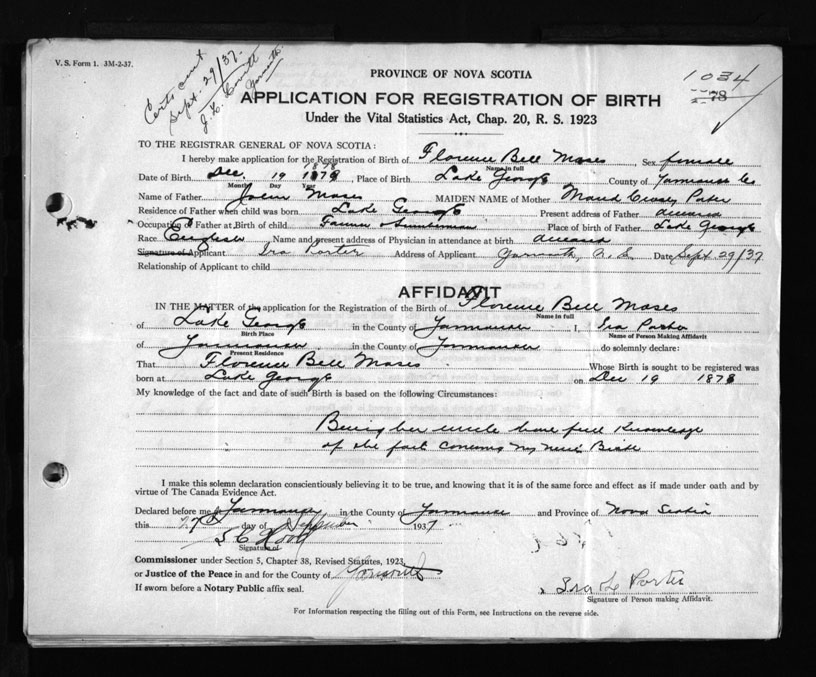 V. S. Form 1. 3M-2-37.
Certs sent
Sept. 29/37.
Yarmouth.
1034
78
PROVINCE OF NOVA SCOTIA
APPLICATION FOR REGISTRATION OF BIRTH
Under the Vital Statistics Act, Chap. 20, R. S. 1923
TO THE REGISTRAR GENERAL OF NOVA SCOTIA:
I hereby make application for the Registration of Birth of Florence Bell Moses, Sex female
Name in full
1878
Date of Birth Dec. 19 187, Place of Birth Lake George County of Yarmouth Co
Month Day Year
Name of Father John Moses MAIDEN NAME of Mother Maud Porter
Residence of Father when child was born Lake George Present address of Father deceased
Occupation of Father at Birth of child Farmer & Lumberman Place of birth of Father Lake George
Race English Name and present address of Physician in attendance at birth deceased
Signature of Applicant Ira Porter Address of Applicant Yarmouth, N.S. Date Sept 29/37
Relationship of Applicant to child
AFFIDAVIT
IN THE MATTER of the application for the Registration of the Birth of Florence Bell Moses
Name in full
of Lake George in the County of Yarmouth I, Ira Porter
Birth Place Name of Person Making Affidavit
of Yarmouth in the County of Yarmouth do solemnly declare:
Present Residence
That Florence Bell Moses Whose Birth is sought to be registered was
born at Lake George on Dec 19 1878
My knowledge of the fact and date of such Birth is based on the following Circumstances:
Being her uncle have full Knowledge
of the fact concerning my Birth
I make this solemn declaration conscientiously believing it to be true, and knowing that it is of the same force and effect as if made under oath and by
virtue of The Canada Evidence Act.
Declared before me at Yarmouth in the County of Yarmouth and Province of Nova Scotia
this 27 day of September 1937
Signature of
Commissioner under Section 5, Chapter 38, Revised Statutes, 1923,
or Justice of the Peace in and for the County of Yarmouth
If sworn before a Notary Public affix seal.
Ira L Porter
Signature of Person making Affidavit.
For Information respecting the filling out of this Form, see Instructions on the reverse side.